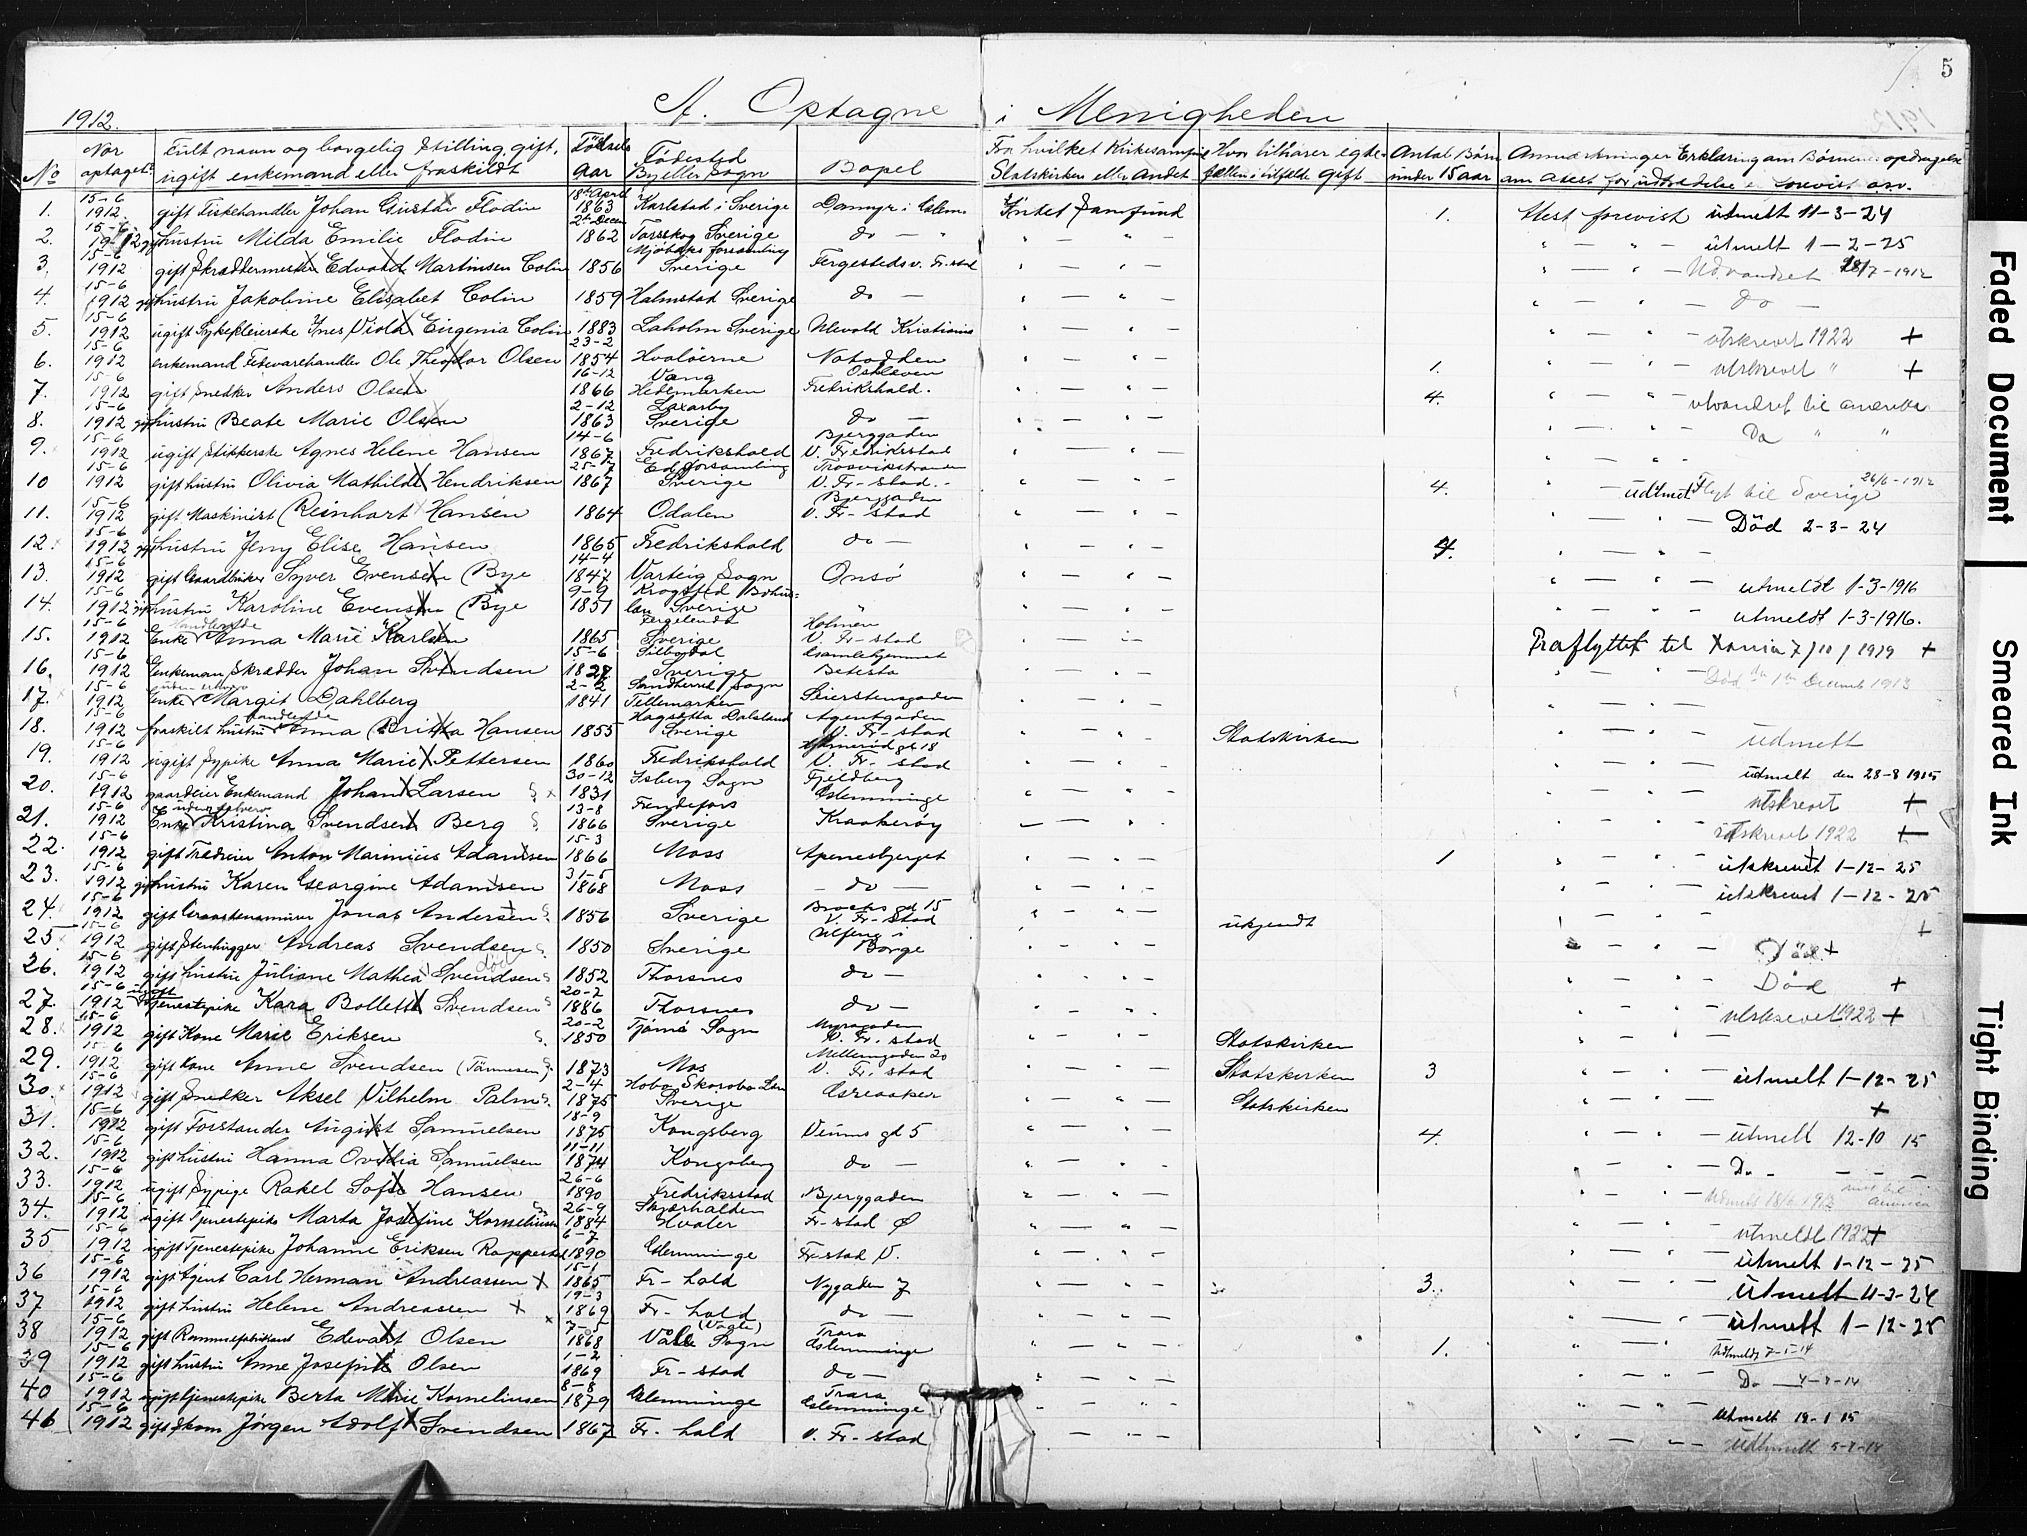 5
1912.
A. Optagne i Menigheden
No
Naar optaget
Fult navn og borgelig Stilling, gift, ugift enkemand eller fraskildt
Födsels Aar
Födested By eller Sogn
Bopel
Fra hvilket Kirkesamfund Statskirken eller Andet
Hvor tilhører egtefællen i tilfælde gift
Antal Børn under 15 aar
Anmærkninger
1. 15-6 1912. gift Fiskehandler Johan Gustav Flodin 18de April 1863 Karlstad i Sverige Intet Samfund 1. Atest forevist utmelt 11-3-24
2. 15-6 1912 hustru Milda Emilie Flodin 2den Decem 1862 Torsskog Sverige do — " utmelt 1-2-25
3. 15-6 1912 gift Skræddermester Edvard Martinsen Colin 1856 Sverige Fergestedsv. Fr.stad Udvandret 7-1912
4. 15-6 1912 hustru Jakobine Elisabet Colin 1859 Halmstad Sverige do — do —
5. 15-6 1912 ugift Sykepleierske Ines Viola Eugenia Colin 1883 Laholm Sverige Ulevold Kristiania utskrevet 1922 +
6. 15-6 1912 enkemand Fetevarehandler Ole Theodor Olsen 23-2 1854 Hvaløerne Notodden 1. utskrevet " +
7. 15-6 1912 gift Snedker Anders Olsen 16-12 1866 Vang Hedemarken Fredrikshald. 4. utvandret til amerika
8. 15-6 1912 hustru Beate Marie Olsen 2-12 1863 Laxarby Sverige do — Do " "
9. 15-6 1912 ugift Agnes Helene Hansen 14-6 1867 Fredrikshald Bjerggaden V. Fredriksstad
10 15-6 1912 gift hustru Olivia Mathilde Hendriksen 25-7 1867 Ed forsamling Sverige Trosvikstranden V. Fr-stad. 4. udtmelt Flyt til Sverige 26/6-1912
11. 15-6 1912 gift Maskinist Reinhart Hansen 1864 Odalen Bjerggaden V. Fr-stad Död 2-3-24
12. 15-6 1912 hustru Jeny Elise Hansen 1865 Fredrikshald do — 4.
13. 15-6 1912 gift Gaardbruker Syver Evensen Bye 14-4 1847 Varteig Sogn Onsö utmeldt 1-3-1916
14. 15-6 1912 hustru Karoline Evensen Bye 9-9 1851 Krogsted Bohuslen Sverige " utmeldt 1-3-1916.
15. 15-6 1912 Enke Handlende Anna Marie Karlsen 1865 Sverige Holmen V. Fr-stad Fraflyttet til 7/10/1919 +
16. 15-6 1912 Enkeman Skrædder Johan Svendsen 15-6 Sverige Gamlehjemmet Betesta Död 1 Decemb 1913
17. 15-6 1912 Enke Margit Dahlberg 2-2 1841 Sandherred Sogn Tellemarken Seierstensgaden
18. 15-6 1912 fraskilt hustru Handlende Anna Britta Hansen 1855 Dalsland Sverige Agentgaden V. Fr-stad Statskirken udmelt
19. 15-6 1912 ugift Sypike Anna Marie Pettersen 1860 Fredrikshald gd 18 V. Fr-stad utmelt den 28-8 1915
20. 15-6 1912 gaardeier Enkemand Johan Larsen 30-12 1831 Isberg Sogn Fjeldberg Glemminge utskrevet +
21. 15-6 1912 Enke Kristina Svendsen Berg 13-8 1866 Frendefors Sverige Kraakerøy utskrevet 1922 +
22. 15-6 1912 gift Anton Marinius Adamsen 15-3 1866 Moss Apenesbjerget 1 utskrevet 1-12-25
23. 15-6 1912 hustru Karen Georgine Adamsen 31-5 1868 Moss — do — utskrevet 1-12-25
24. 15-6 1912 gift Jonas Andersen 1856 Sverige Brochs gd 15 V. Fr-stad ukjendt +
25. 15-6 1912 gift Stenhugger Andreas Svendsen 1850 Sverige i Borge Död +
26. 15-6 1912 gift hustru Juliane Mathea Svendsen död 1852 Thorsnes do — Död +
27. 15-6 1912 ugift Tjenestepike Kara Bollette Svendsen 20-2 1886 Thorsnes do — utskrevet 1922 +
28. 15-6 1912 gift Kone Marie Eriksen 20-2 1850 Tjömö Sogn Myragaden V. Fr. stad Statskirken
29. 15-6 1912 gift Kone Anne Svendsen 1873 Mos Mellemgaden 20 V. Fr. stad Statskirken 3 utmelt 1-12-25
30. 15-6 1912 gift Snedker Aksel Vilhelm Palm 2-4 1875 Sverige Greaaker Statskirken +
31. 15-6 1912 gift Forstander August Samuelsen 18-9 1875 Kongsberg Veums gd 5 4. utmelt 12-10 15
32. 15-6 1912 gift hustru Hanna Ovidia Samuelsen 11-11 1874 Kongsberg do — Do — — —
33. 15-6 1912 ugift Sypige Rakel Sofie Hansen 26-6 1890 Fredriksstad Bjerggaden Utmelt 18/6 1913
34. 15-6 1912 ugift Tjenestepike Marta Josefine Kornelius 26-9 1884 Skjærhalden Hvaler Fr-stad Ø utmeldt 1922 +
35 15-6 1912 ugift Tjenestepike Johanne Eriksen Roppestad 6-7 1890 Glemminge Fr-stad V. utmelt 1-12-25
36 15-6 1912 gift Agent Carl Herman Andreassen 15-1 1865 Fr-hald Nygaden 7 3. utmelt 11-3-24
37 15-6 1912 gift hustru Helene Andreassen 19-3 1869 Fr-hald do — utmelt 1-12-25
38 15-6 1912 gift Rammefabrikant Edevart Olsen 7-5 1868 Våle Sogn Trara Glemminge 1. Udtmeldt 7-5-14
39 15-6 1912 gift hustru Anne Josefine Olsen 1-2 1869 Fr-stad do — Do — 4-8-14
40 15-6 1912 ugift tjenestepike Berta Marie Kornelinsen 8-8 1879 Glemminge Trara Glemminge utmelt 19-1 15
41 15-6 1912 gift Skom Jörgen Adolf Svendsen 1867 Fr-hald V. Fr-stad udtmelt
Faded Document
Smeared Ink
Tight Binding